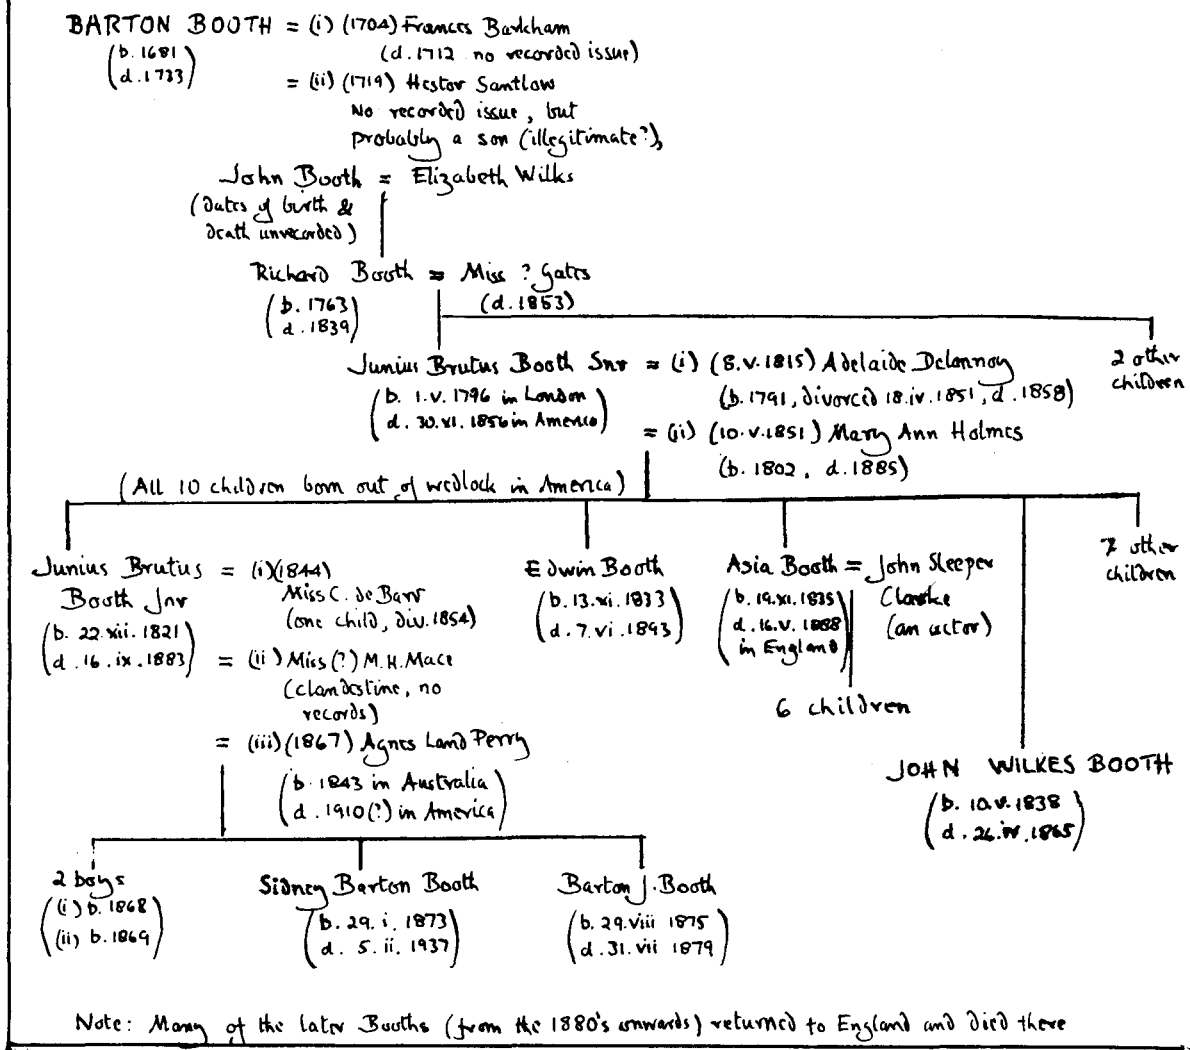 BARTON BOOTH = (i) (1704) Frances Barkham
(b. 1681
d. 1733)
(d. 1712 no recorded issue)
= (ii) (1719) Hester Santlow
No recorded issue, but
probably a son (illegitimate?),
John Booth = Elizabeth Wilks
(dates of birth &
death unrecorded)
Richard Booth = Miss ? Gates
(b. 1763
d. 1839)
(d. 1853)
Junius Brutus Booth Snr = (i) (8.v.1815) Adelaide Delannoy
(b. 1.v. 1796 in London
d. 30.xi. 1856 in America)
(b. 1791, divorced 18.iv.1851, d. 1858)
2 other
children
= (ii) (10.v.1851) Mary Ann Holmes
(b. 1802, d. 1885)
(All 10 children born out of wedlock in America)
Junius Brutus
Booth Jnr
(b. 22.xii. 1821
d. 16. ix. 1883)
= (i)(1844)
Miss C. de Barr
(one child, div. 1854)
= (ii) Miss (?) M.H. Mace
(clandestine, no
records)
= (iii) (1867) Agnes Land Perry
(b. 1843 in Australia
d. 1910(?) in America)
Edwin Booth
(b. 13.xi. 1833
d. 7. vi. 1893)
Asia Booth = John Sleeper
Clarke
(an actor)
(b. 19.xi. 1835
d. 16.v. 1888
in England)
6 children
other
children
JOHN WILKES BOOTH
(b. 10.v. 1838
d. 26.iv. 1865)
2 boys
((i) b. 1868
(ii) b. 1869)
Sidney Barton Booth
(b. 29. i. 1873
d. 5. ii. 1937)
Barton J. Booth
(b. 29.viii 1875
d. 31. vii 1879)
Note: Many of the later Booths (from the 1880's onwards) returned to England and died there